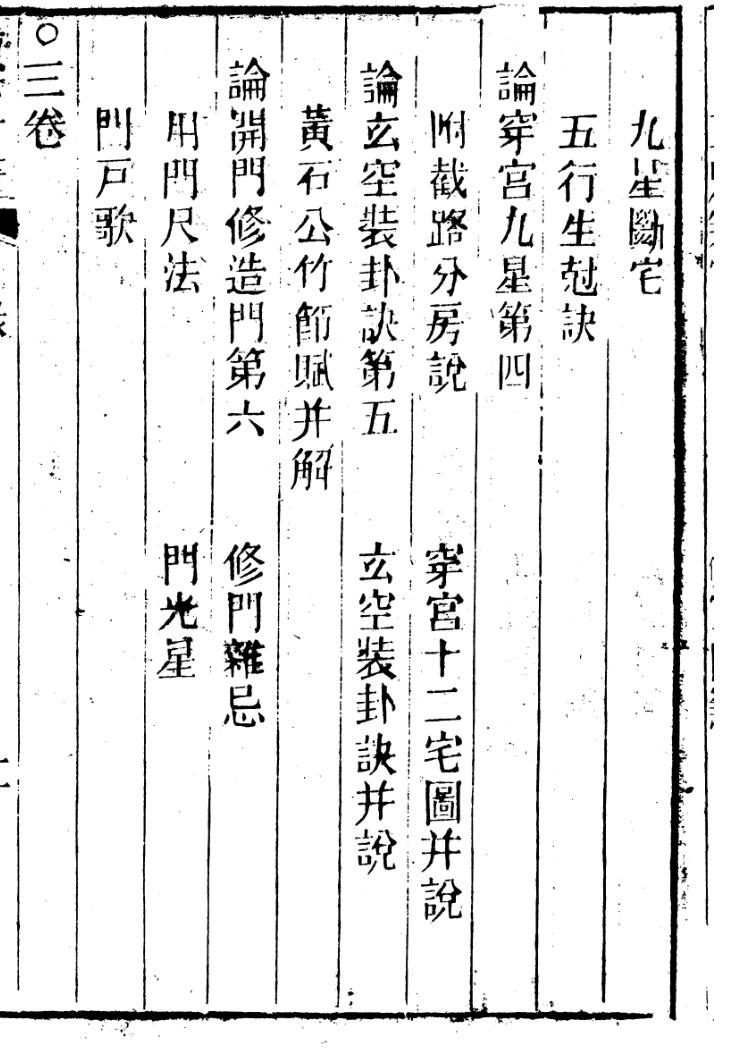 九星斷宅
五行生尅訣
論穿宮九星第四
附截路分房說　穿宮十二宅圖并說
論玄空裝卦訣第五　玄空裝卦訣并說
黃石公竹節賦并解
論開門修造門第六　修門雜忌
用門尺法　門光星
門戸歌
○三卷